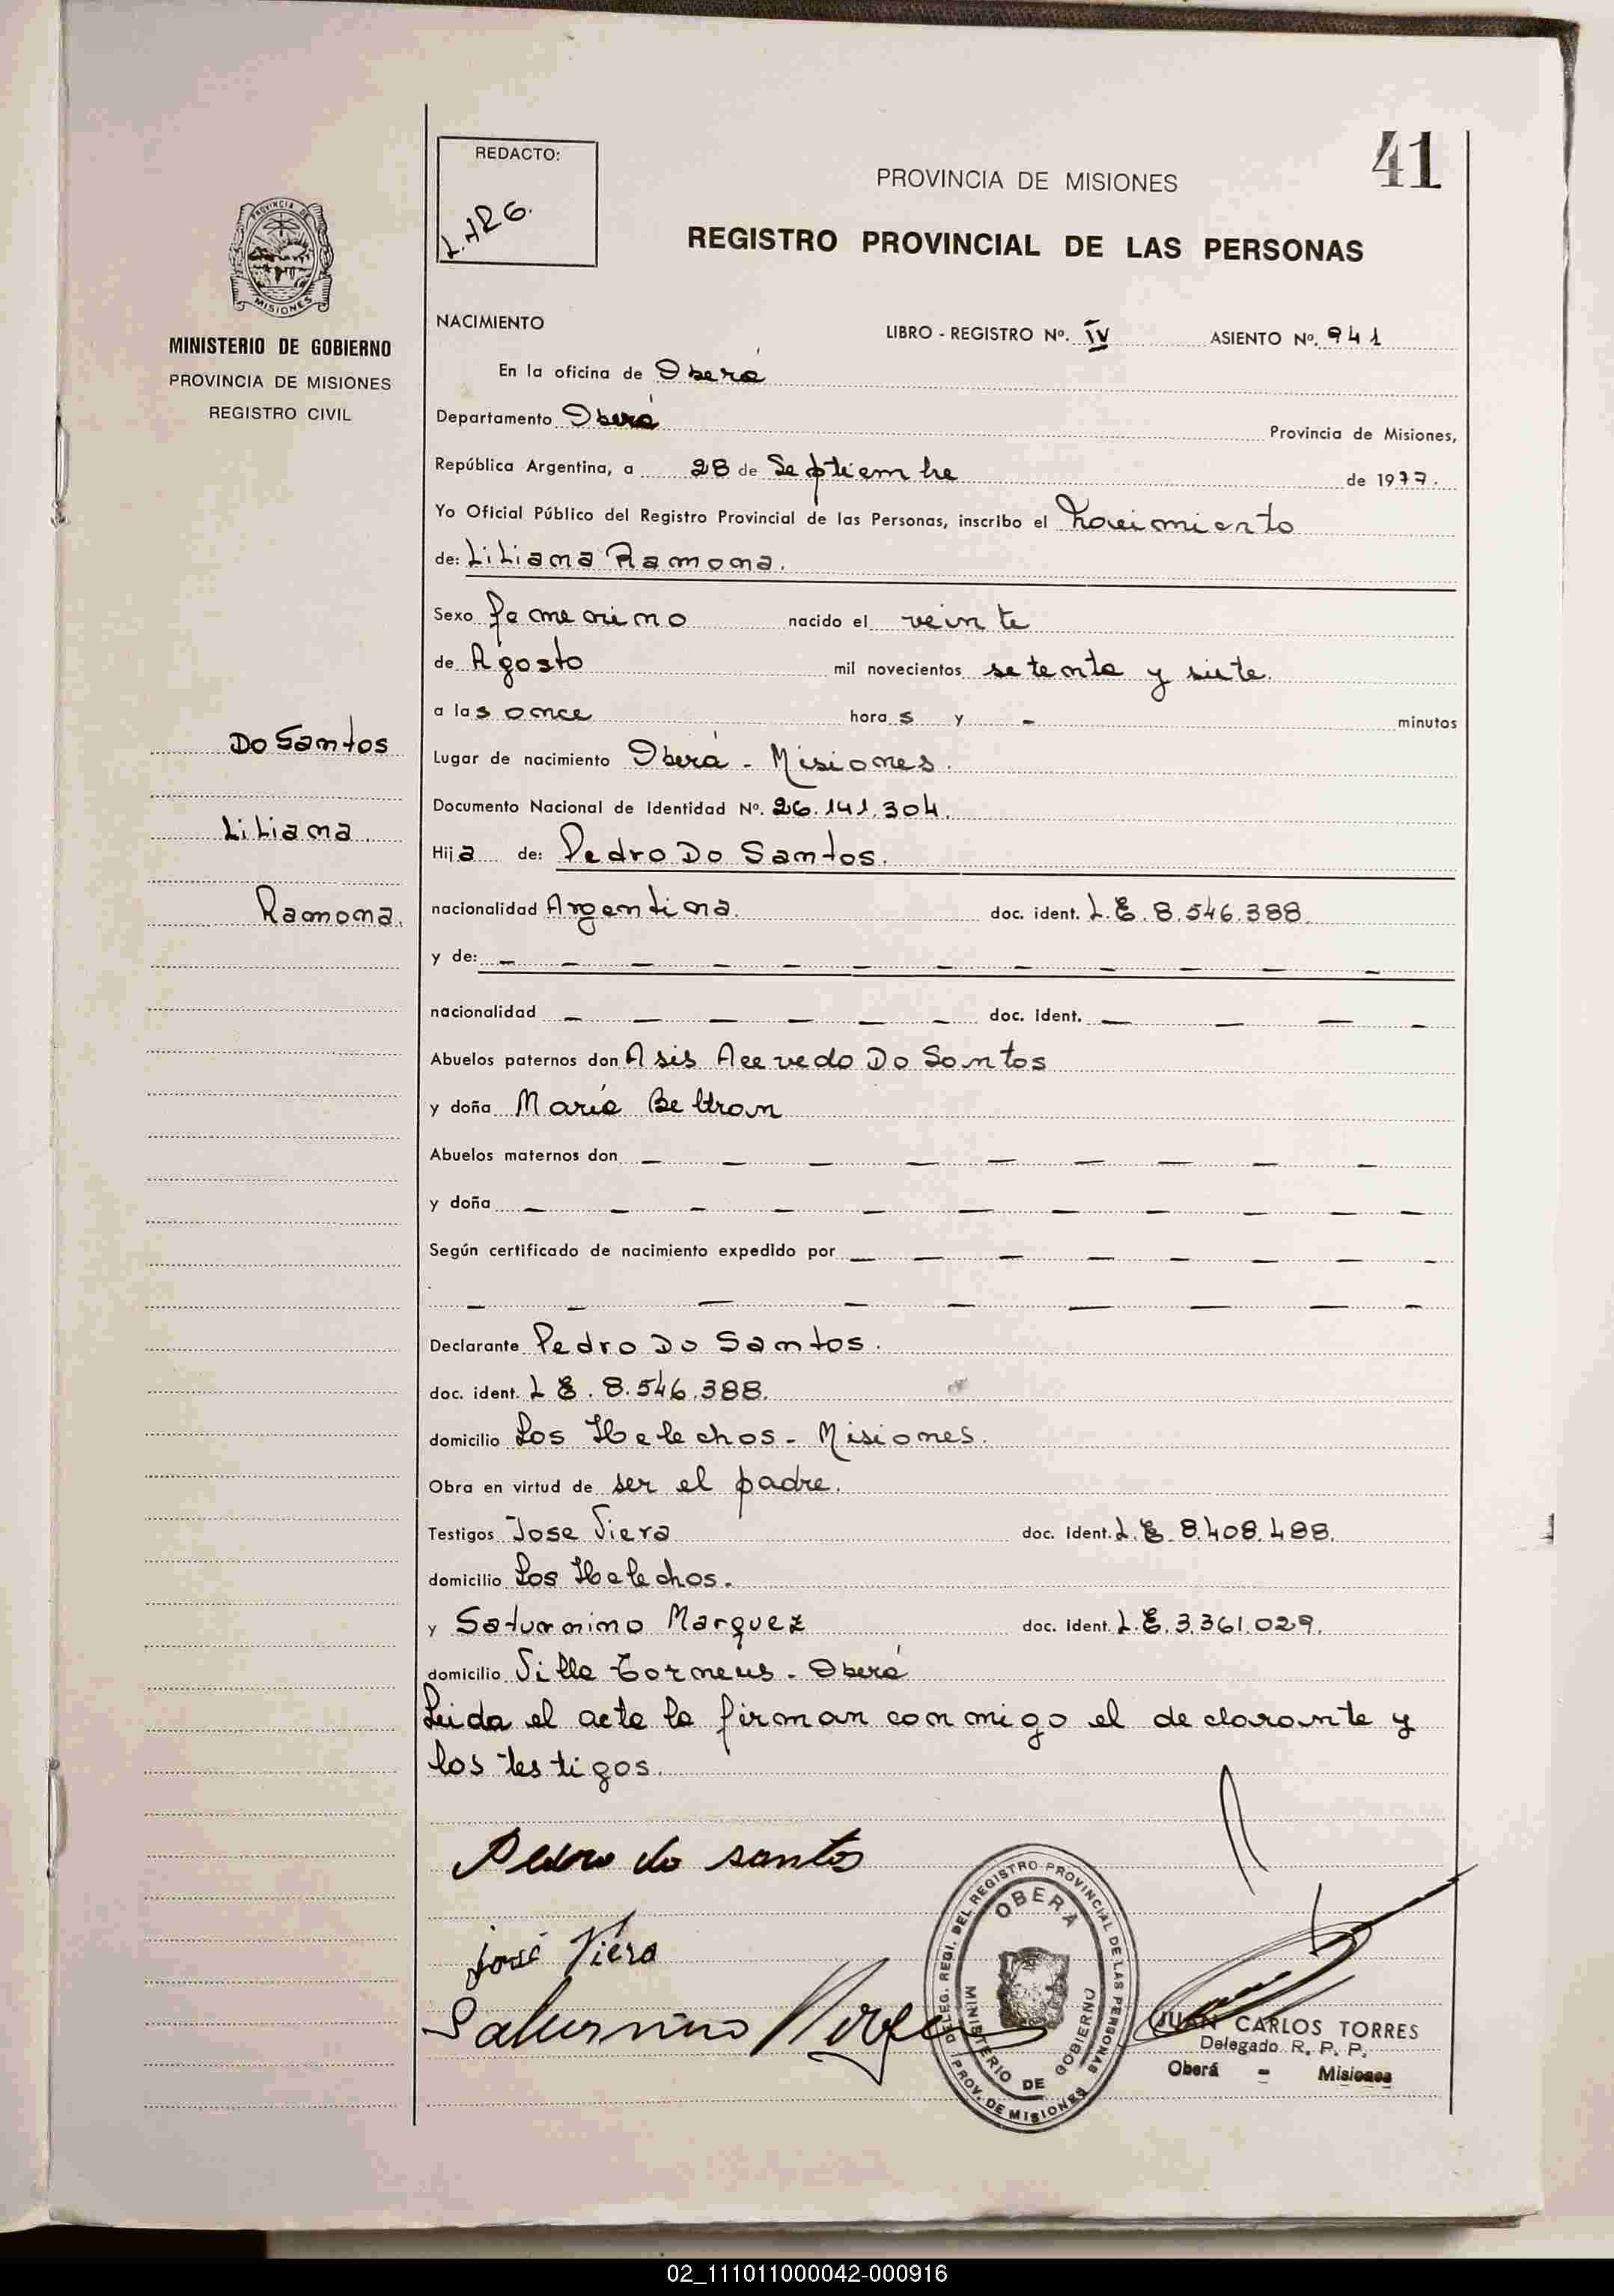 41
REDACTO:
L.H.R.G.
PROVINCIA DE MISIONES
REGISTRO PROVINCIAL DE LAS PERSONAS
PROVINCIA DE
MISIONES
MINISTERIO DE GOBIERNO
PROVINCIA DE MISIONES
REGISTRO CIVIL
NACIMIENTO LIBRO - REGISTRO Nº. IV ASIENTO Nº. 941
En la oficina de Oberá
Departamento Oberá Provincia de Misiones,
República Argentina, a 28 de Septiembre de 1977.
Yo Oficial Público del Registro Provincial de las Personas, inscribo el nacimiento
de: Liliana Ramona.
Sexo femenino nacido el veinte
de Agosto mil novecientos setenta y siete.
a las once horas y - minutos
Do Santos
Liliana
Ramona.
Lugar de nacimiento Oberá - Misiones.
Documento Nacional de Identidad Nº. 26.141.304.
Hija de: Pedro Do Santos.
nacionalidad Argentina. doc. ident. L.E. 8.546.388.
y de: - - - - - - - - - - -
nacionalidad - - - - - - doc. ident. - - - -
Abuelos paternos don Asis Acevedo Do Santos
y doña María Beltran
Abuelos maternos don - - - - - - - - -
y doña - - - - - - - - - - -
Según certificado de nacimiento expedido por - - - - - - - -
- - - - - - - - -
Declarante Pedro Do Santos.
doc. ident. L E. 8.546.388.
domicilio Los Helechos - Misiones.
Obra en virtud de ser el padre.
Testigos Jose Viera doc. ident. L.E. 8.408.488.
domicilio Los Helechos.
y Saturnino Marquez doc. ident. L.E. 3.361.029.
domicilio Villa Torneus - Oberá
Leida el acta la firman conmigo el declarante y
los testigos.
Pedro do santos
José Viera
Saturnino
DELEG. REGI. DEL REGISTRO PROVINCIAL DE LAS PERSONAS
OBERA
MINISTERIO DE GOBIERNO
PROV. DE MISIONES
JUAN CARLOS TORRES
Delegado R. P. P.
Oberá - Misiones
02_111011000042-000916